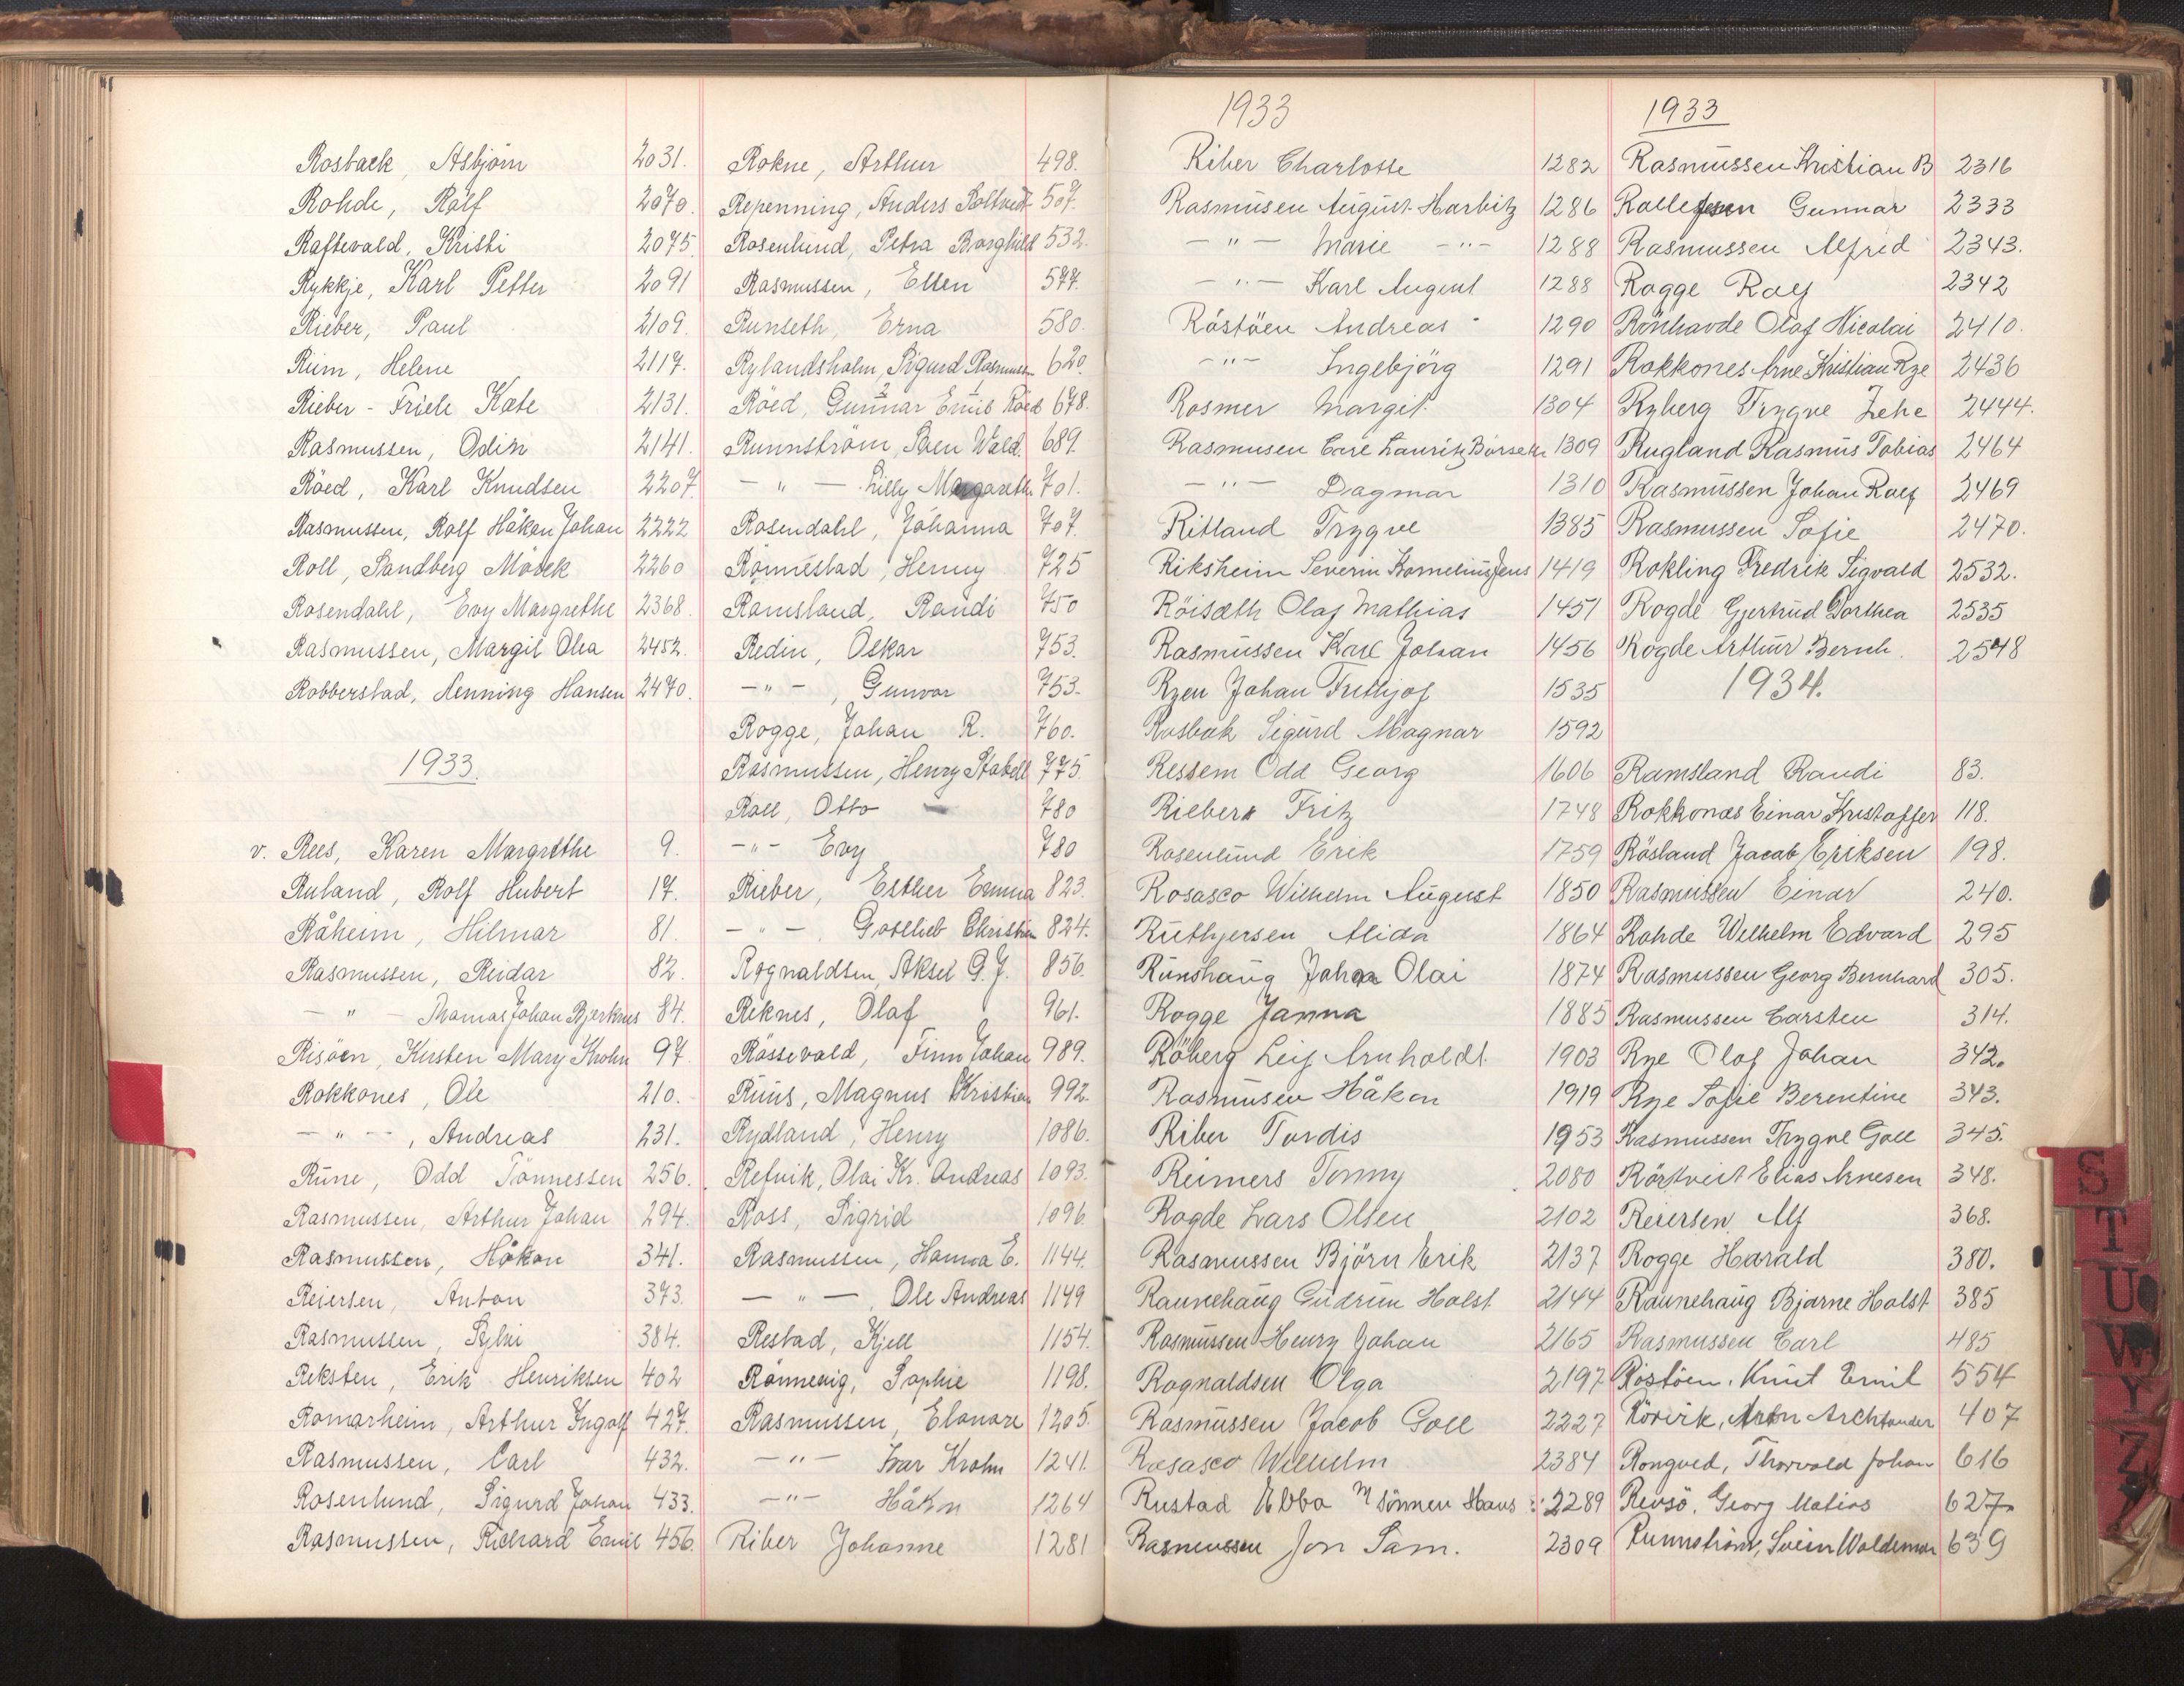 Rosback, Asbjørn 2031.
Rohde, Rolf 2070.
Raftevold, Kristi 2075
Rykkje, Karl Petter 2091
Rieber, Paul 2109.
Riim, Helene 2117.
Rieber - Friele Kate 2131.
Rasmussen, Odin 2141.
Röed, Karl Knudsen 2207.
Rasmussen, Rolf Håkon Johan 2222
Roll, Sandberg 2260
Rosendahl, Evy Margrethe 2368.
Rasmussen, Margit Olea 2452.
Robberstad, Henning Hansen 2470.
1933.
v. Rees, Karen Margrethe 9.
Ruland, Rolf Hubert 17.
Råheim, Hilmar 81.
Rasmussen, Reidar 82.
— " — Thomas Johan Bjerknes 84.
Risöen, Kirsten Mary Krohn 97.
Rokkones, Ole 210.
— " —, Andreas 231.
Rune, Odd Tönnessen 256.
Rasmussen, Arthur Johan 294.
Rasmussen, Håkon 341.
Reiersen, Anton 373.
Rasmussen, Sylvi 384.
Reksten, Erik Henriksen 402
Romarheim, Arthur Ingolf 427.
Rasmussen, Carl 432.
Rosenlund, Sigurd Johan 433.
Rasmussen, Richard Emil 456.
Rokne, Arthur 498.
Repenning, Anders Soltvedt 507.
Rosenlund, Petra Borghild 532.
Rasmussen, Ellen 577.
Runseth, Erna 580.
Rylandsholm, Sigurd Rasmussen 620.
Röed, Gunnar Emil Röed 678.
Runnström, Sven Wald. 689.
— " — Lilly Margareth. 701.
Rosendahl, Johanna 707.
Rönnestad, Henny 725
Ramsland, Randi 750
Redin, Oskar 753.
— " —, Gunvor 753.
Rogge, Johan R. 760.
Rasmussen, Henry Stabell 775.
Roll, Otto 780
— " — Evy 780
Rieber, Esther Emma 823.
— " —, Gottlieb Christian 824.
Rognaldsen, Aksel G. J. 856.
Reknes, Olaf 961.
Rössevold, Finn Johan 989.
Ruus, Magnus Kristian 992.
Rydland, Henry 1086.
Refvik, Olai Kr. Andreas 1093.
Ross, Sigrid 1096.
Rasmussen, Hanna E. 1144.
— " —, Ole Andreas 1149
Restad, Kjell 1154.
Rönnevig, Sophie 1198.
Rasmussen, Elonore 1205.
— " — Ivar Krohn 1241.
— " — Håkon 1264
Riber Johanne 1281
1933
Riber Charlotte 1282
Rasmusen August Harbitz 1286
— " — Marie — " — 1288
— " — Karl August 1288
Röstöen Andreas 1290
— " — Ingebjörg 1291
Rosmer Margit. 1304
Rasmusen Carl Lauritz 1309
— " — Dagmar 1310
Ritland Trygve 1385
Riksheim Severin Kornelius Jens 1419
Röisæth Olaf Mathias 1451
Rasmussen Karl Johan 1456
Ryen Johan Frithjof 1535
Rosbak Sigurd Magnar 1592
Ressem Odd Georg 1606
Rieber Fritz 1748
Rosenlund Erik 1759
Rosasco Wilhelm August 1850
Ruthjersen Alida 1864
Runshaug Johan Olai 1874
Rogge Janna 1885
Röberg Leif Arnholdt 1903
Rasmusen Håkon 1919
Riber Tordis 1953
Reimers Tommy 2080
Rogde Lars Olsen 2102
Rasmussen Björn Erik 2137
Raunehaug Gudrun Holst 2144
Rasmussen Henry Johan 2165
Rognaldsen Olga 2197
Rasmussen Jacob Goll 2227
Rosasco Wilhelm 2384
Rustad Ebba M sönnen Hans 2289
Rasmussen Jon Sam. 2309
1933
Rasmussen Kristian B 2316
Rollefsen Gunnar 2333
Rasmussen Alfred 2343.
Rogge Roy 2342
Rönhovde Olaf Nicolai 2410.
Rokkones Arne Kristian Rye 2436
Ryberg Trygve Zehe 2444.
Rugland Rasmus Tobias 2464
Rasmussen Johan Rolf 2469
Rasmussen Sofie 2470.
Rokling Fredrik Sigvald 2532.
Rogde Gjertrud Dorthea 2535
Rogde Arthur Bernh. 2548
1934.
Ramsland Randi 83.
Rokkonæs Einar Kristoffer 118.
Rösland Jacob Eriksen 198.
Rasmussen Einar 240.
Rohde Wilhelm Edvard 295
Rasmussen Georg Bernhard 305.
Rasmussen Carsten 314.
Rye Olaf Johan 342.
Rye Sofie Berentine 343.
Rasmussen Trygve Goll 345.
Rörtveit Elias Arnesen 348.
Reiersen Alf 368.
Rogge Harald 380.
Raunehaug Bjarne Holst 385
Rasmussen Carl 485
Röstöen, Knut Emil 554
Rövik, 407
Rongved, Thorvald Johan 616
Revsö, Georg Matias 627
Runnström, Svein Woldemar 639
S
T
U
W
Y
Z